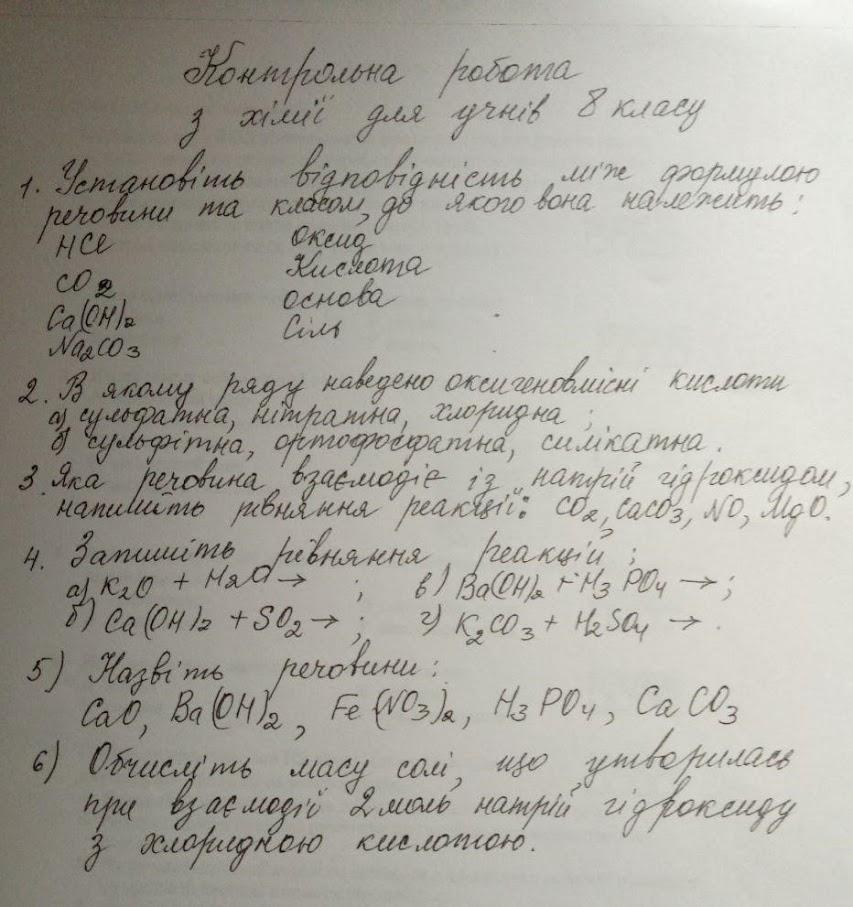 Контрольна робота
з хімії для учнів 8 класу
1. Установіть відповідність між формулою
речовини та класом, до якого вона належить:
HCl Оксид
CO2 Кислота
Ca(OH)2 основа
Na2CO3 Сіль
2. В якому ряду наведено оксигеновмісні кислоти
а) сульфатна, нітратна, хлоридна;
б) сульфітна, ортофосфатна, силікатна.
3. Яка речовина взаємодіє із натрій гідроксидом,
напишіть рівняння реакції: CO2, CaCO3, NO, MgO.
4. Запишіть рівняння реакцій;
а) K2O + H2O → ; в) Ba(OH)2 + H3PO4 → ;
б) Ca(OH)2 + SO2 → ; г) K2CO3 + H2SO4 → .
5) Назвіть речовини:
CaO, Ba(OH)2, Fe(NO3)2, H3PO4, CaCO3
6) Обчисліть масу солі, що утворилась
при взаємодії 2 моль натрій гідроксиду
з хлоридною кислотою.